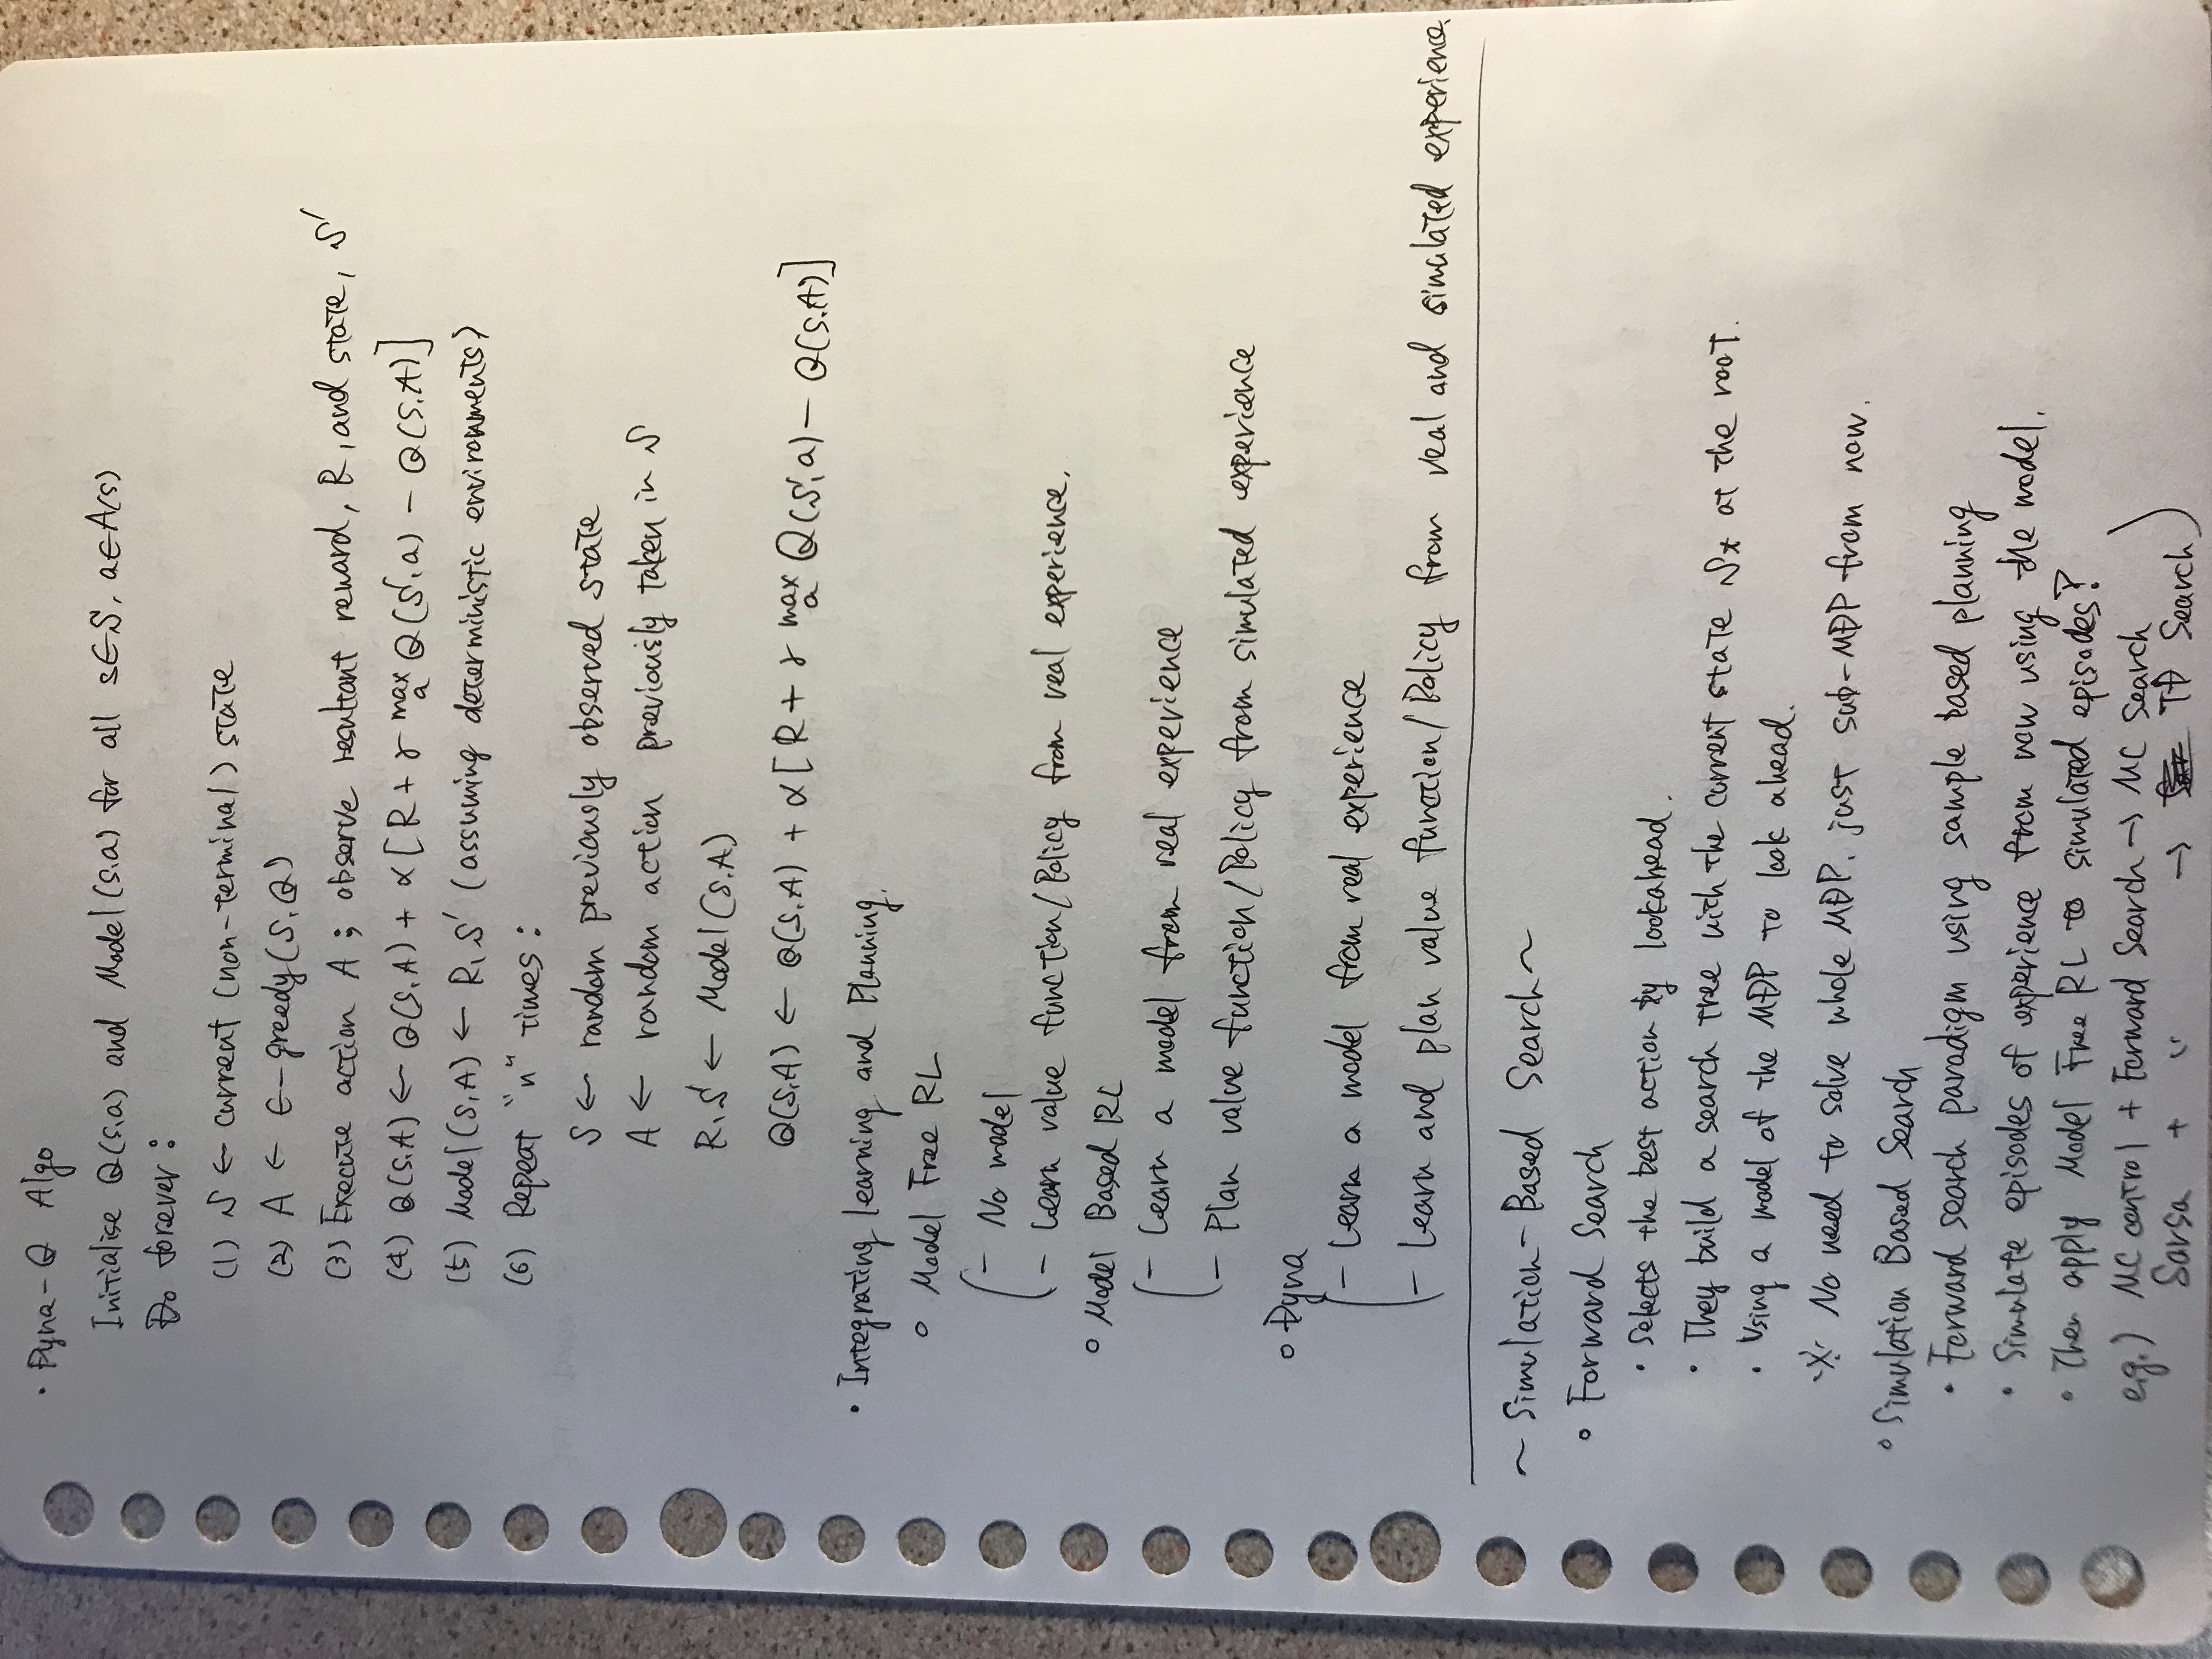 · Dyna-Q Algo
Initialise Q(s,a) and Model(s,a) for all s∈S, a∈A(s)
Do forever:
(1) S ← current (non-terminal) state
(2) A ← ε-greedy(S,Q)
(3) Execute action A; observe resultant reward, R, and state, S'
(4) Q(S,A) ← Q(S,A) + α[R + γ max_a Q(S',a) - Q(S,A)]
(5) Model(S,A) ← R, S' (assuming deterministic environments)
(6) Repeat "n" times:
S ← random previously observed state
A ← random action previously taken in S
R, S' ← Model(S,A)
Q(S,A) ← Q(S,A) + α[R + γ max_a Q(S',a) - Q(S,A)]
· Integrating learning and Planning.
○ Model Free RL
- No model
- Learn value function/Policy from real experience.
○ Model Based RL
- Learn a model from real experience
- Plan value function/Policy from simulated experience
○ Dyna
- Learn a model from real experience
- Learn and plan value function/Policy from real and simulated experience.
~ Simulation-Based Search ~
○ Forward Search
· Selects the best action by lookahead.
· They build a search tree with the current state St at the root.
· Using a model of the MDP to look ahead.
※ No need to solve whole MDP, just sub-MDP from now.
○ Simulation Based Search
· Forward search paradigm using sample based planning
· Simulate episodes of experience from now using the model.
· Then apply Model Free RL to simulated episodes?
e.g.) MC control + Forward Search → MC Search
Sarsa + " → TD Search)